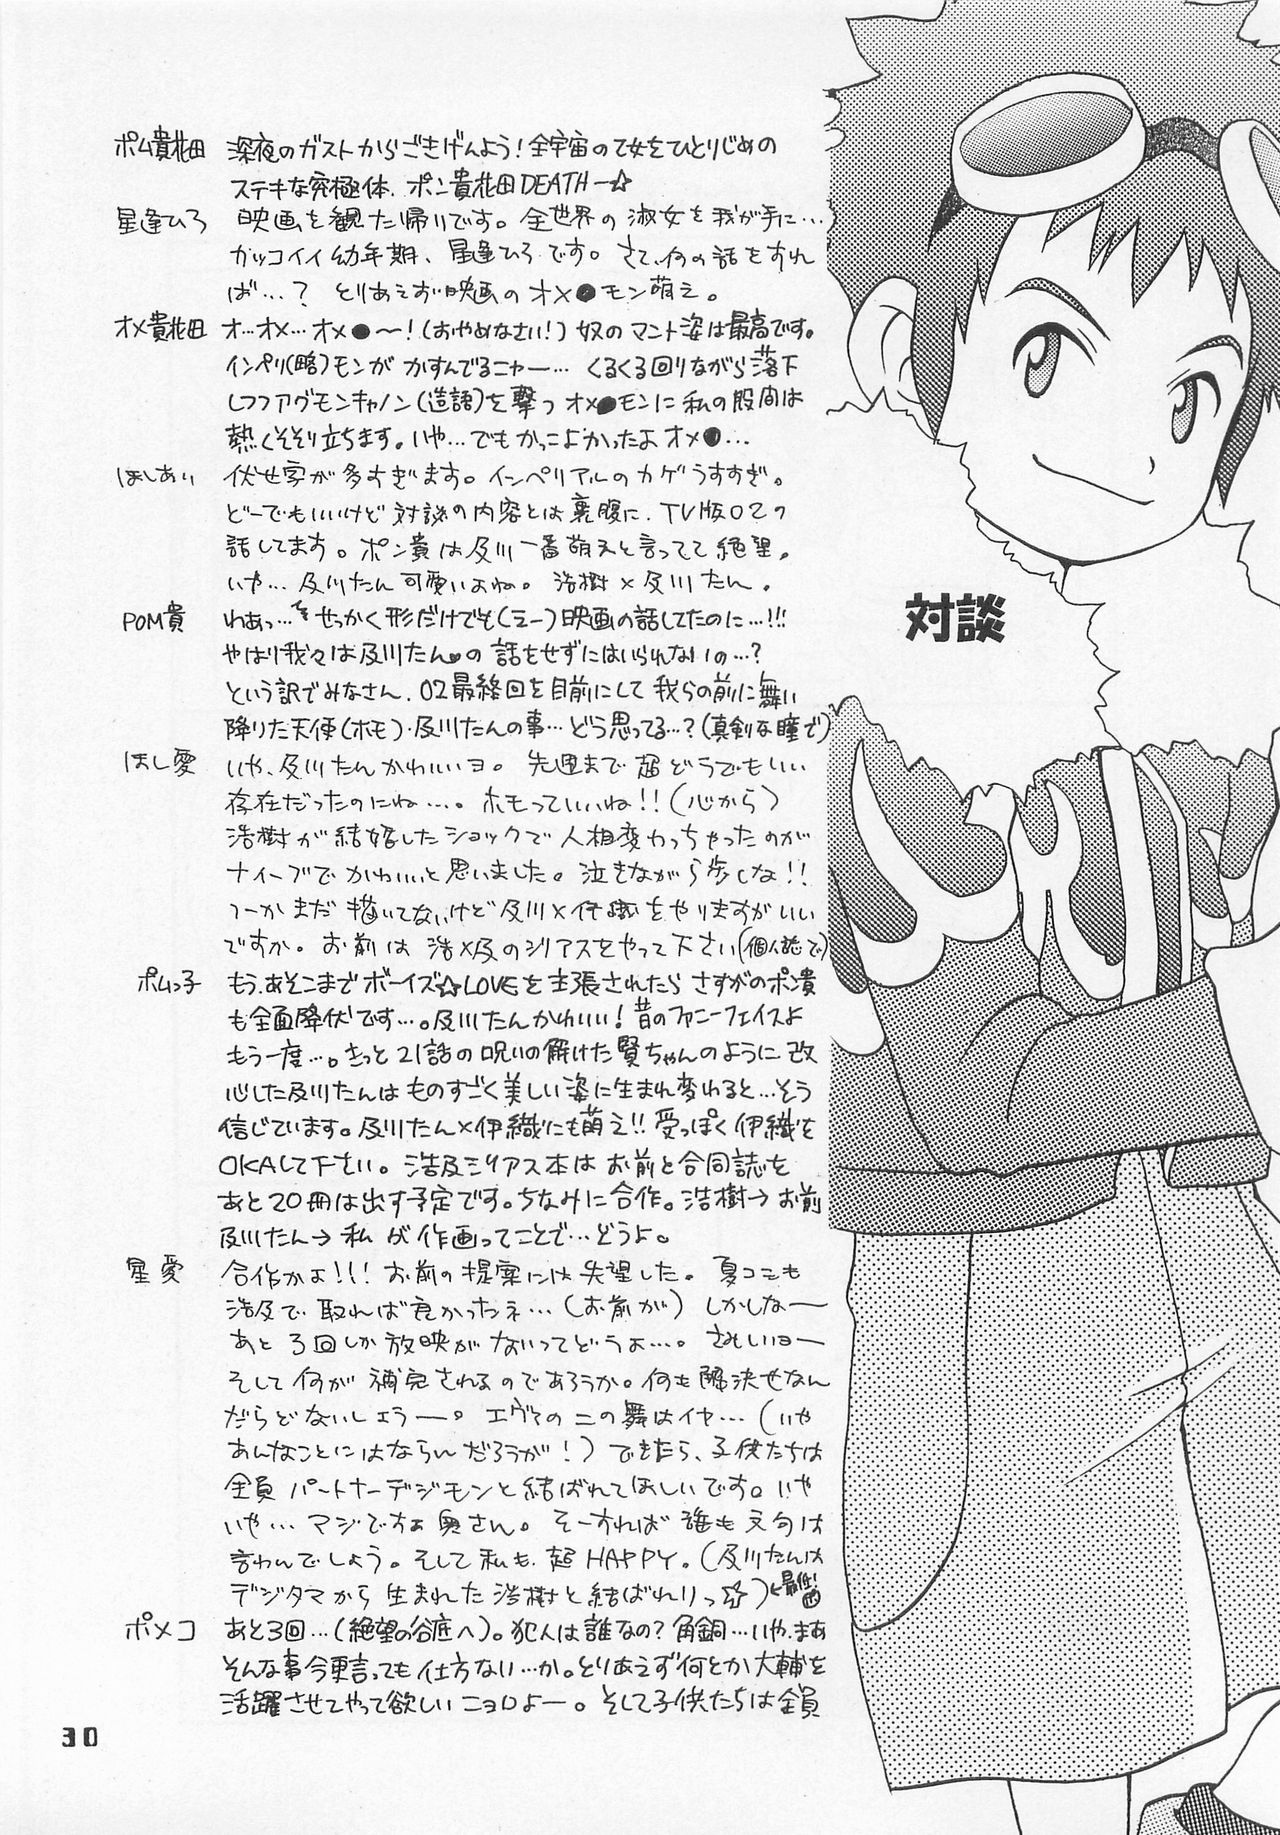 ポム貴花田 深夜のガストからごきげんよう!全宇宙の乙女をひとりじめの
ステキな究極体、ポン貴花田DEATHー☆
星逢ひろ 映画を観た帰りです。全世界の淑女を我が手に…
カッコイイ幼年期、星逢ひろです。さて、何の話をすれ
ば…? とりあえず映画のオメ●モン萌え。
オメ貴花田 オ…オメ…オメ●〜!(おやめなさい!)奴のマント姿は最高です。
インペリ(略)モンがかすんでるニャー… くるくる回りながら落下
しつつ
キャノン(造語)を撃つ オメ●モンに私の股間は
熱くそそり立ちます。いや…でもかっこよかったよオメ●…
ほしあい 伏せ字が多すぎます。インペリアルのカゲうすすぎ。
どーでもいいけど対談の内容とは裏腹に、TV版02の
話してます。ポン貴は及川一番萌えと言ってて絶望。
いや…及川たん可愛いよね。浩樹×及川たん。
POM貴 わあっ… せっかく形だけでも(えー)映画の話してたのに…!!!
やはり我々は及川たん♥の話をせずにはいられないの…?
という訳でみなさん、02最終回を目前にして我らの前に舞い
降りた天使(ホモ)・及川たんの事…どう思ってる…?(真剣な瞳で)
ほし愛 いや、及川たんかわいいヨ。先週まで超どうでもいい
存在だったのにね…。ホモっていいね!!(心から)
浩樹が結婚したショックで人相変わっちゃったのが
ナイーブでかわいいと思いました。泣きながら歩しな!!
つーかまだ描いてないけど及川×伊織をやりますがいい
ですか。お前は浩×及のシリアスをやって下さい(個人誌で)
ポムっ子 もう、あそこまでボーイズ☆LOVEを主張されたらさすがのポン貴
も全面降伏です…。及川たんかわいい!昔のファニーフェイスよ
もう一度…。きっと21話の呪いの解けた賢ちゃんのように改
心した及川たんはものすごく美しい姿に生まれ変わると…そう
信じています。及川たん×伊織にも萌え!!受っぽく伊織を
OKAして下さい。浩及シリアス本はお前と合同誌を
あと20冊は出す予定です。ちなみに合作。浩樹→お前
及川たん→私 が作画ってことで…どうよ。
星愛 合作かよ!!! お前の提案には失望した。夏コミも
浩及で取れば良かったネ…(お前が)しかしなー
あと3回しか放映がないってどうよ…。さみしいヨー
そして何が補完されるのであろうか。何も解決せなん
だらどないしょうー。エヴァの二の舞はイヤ…(いや
あんなことにはならんだろうが!)できたら、子供たちは
全員パートナーデジモンと結ばれてほしいです。いや
いや…マジですよ奥さん。そーすれば誰も文句は
言わんでしょう。そして私も超HAPPY。(及川たんは
デジタマから生まれた浩樹と結ばれりっ☆)←最低!
ポメコ あと3回…(絶望の谷底へ)。犯人は誰なの?角銅…いや、まあ
そんな事今更言っても仕方ない…か。とりあえず何とか大輔を
活躍させてやって欲しいニョロよー。そして子供たちは全員
対談
30